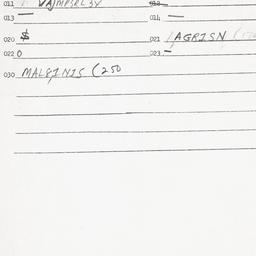 011 VAJMPSRL3Y 012 —
013 — 014 —
020 $ 021 AGRISN (
022 0 023 —
030 MALSINIS (250